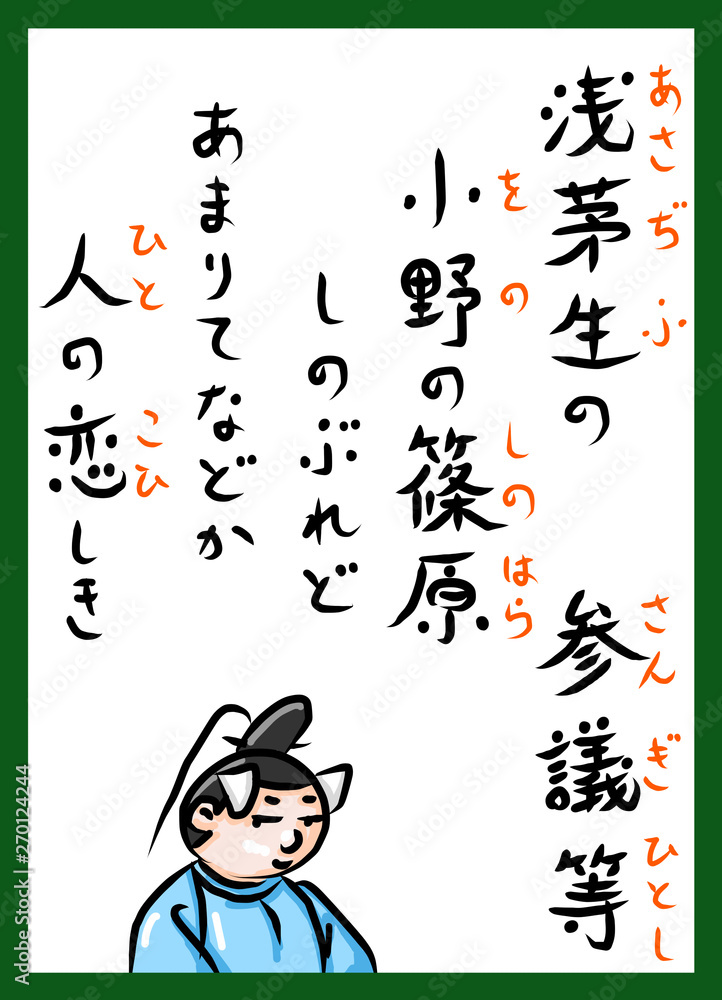 浅茅生の
あさぢふ
参議等
さんぎひとし
小野の篠原
をの
しのはら
しのぶれど
あまりてなどか
人の恋しき
ひと
こひ
Adobe Stock | #270124244